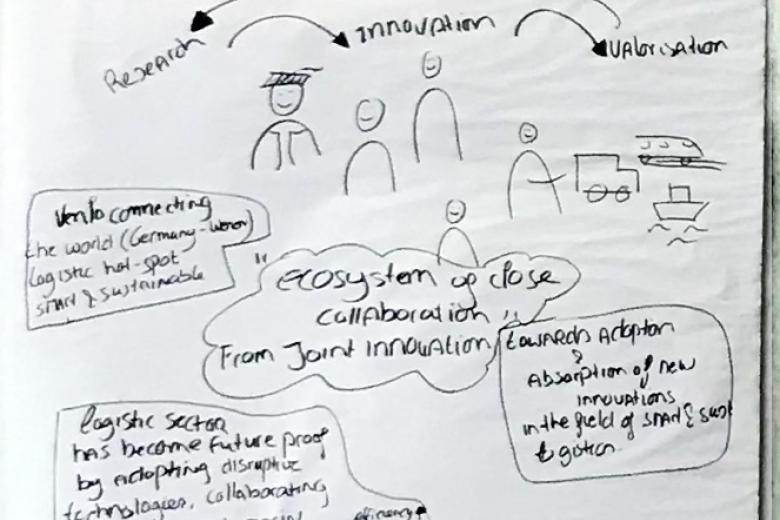 Research
Innovation
Valorisation
Venlo connecting
the world (Germany -
logistic hot-spot
smart & sustainable
"ecosystem of close
collaboration"
From Joint Innovation
towards Adoption
&
Absorption of new
innovations
in the field of smart & sust
logistics
logistic sector
has become future proof
by adopting disruptive
technologies, collaborating